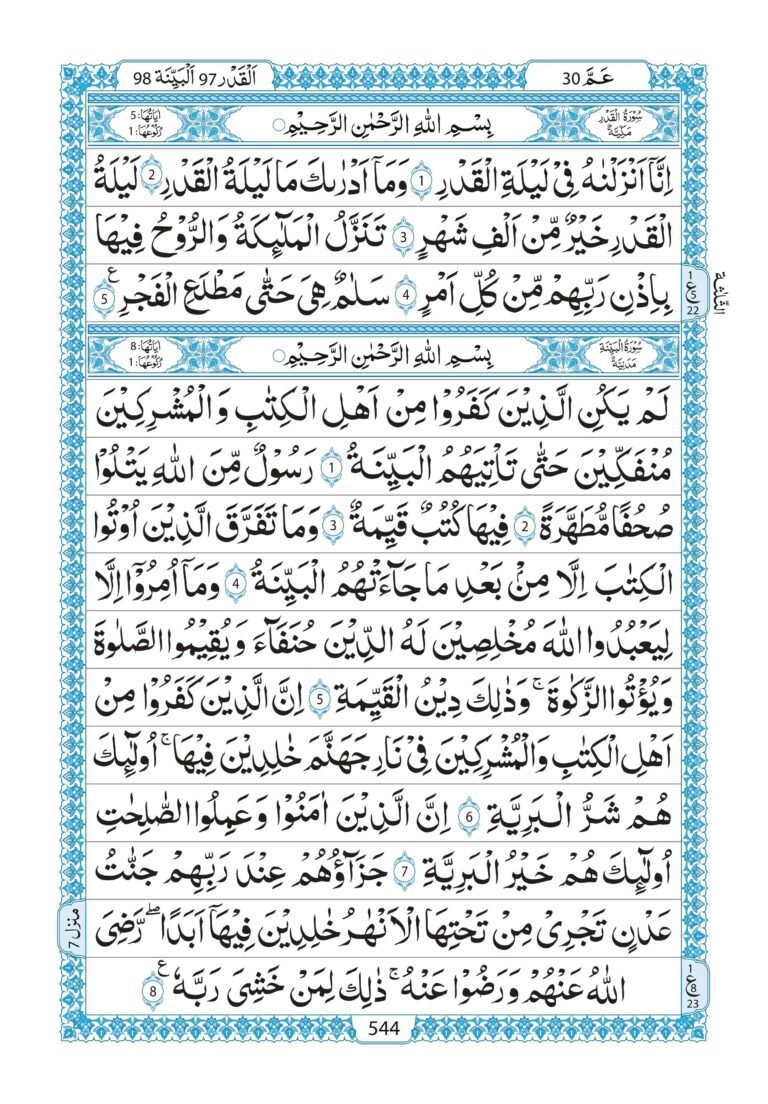 عَمَّ 30
اَلْقَدْر 97 اَلْبَيِّنَة 98
سُوْرَةُ الْقَدْرِ
مَكِّيَّةٌ
بِسْمِ اللّٰهِ الرَّحْمٰنِ الرَّحِيْمِ
اٰيَاتُهَا: 5
رُكُوْعُهَا: 1
اِنَّاۤ اَنْزَلْنٰهُ فِيْ لَيْلَةِ الْقَدْرِ 1 وَمَاۤ اَدْرٰىكَ مَا لَيْلَةُ الْقَدْرِ 2 لَيْلَةُ
الْقَدْرِ خَيْرٌ مِّنْ اَلْفِ شَهْرٍ 3 تَنَزَّلُ الْمَلٰٓئِكَةُ وَالرُّوْحُ فِيْهَا
بِاِذْنِ رَبِّهِمْ مِّنْ كُلِّ اَمْرٍ 4 سَلٰمٌ هِيَ حَتّٰى مَطْلَعِ الْفَجْرِ ع 5
1
ع 5
22
الثلٰثة
سُوْرَةُ الْبَيِّنَةِ
مَدَنِيَّةٌ
بِسْمِ اللّٰهِ الرَّحْمٰنِ الرَّحِيْمِ
اٰيَاتُهَا: 8
رُكُوْعُهَا: 1
لَمْ يَكُنِ الَّذِيْنَ كَفَرُوْا مِنْ اَهْلِ الْكِتٰبِ وَالْمُشْرِكِيْنَ
مُنْفَكِّيْنَ حَتّٰى تَاْتِيَهُمُ الْبَيِّنَةُ 1 رَسُوْلٌ مِّنَ اللّٰهِ يَتْلُوْا
صُحُفًا مُّطَهَّرَةً 2 فِيْهَا كُتُبٌ قَيِّمَةٌ 3 وَمَا تَفَرَّقَ الَّذِيْنَ اُوْتُوا
الْكِتٰبَ اِلَّا مِنْۢ بَعْدِ مَا جَآءَتْهُمُ الْبَيِّنَةُ 4 وَمَاۤ اُمِرُوْۤا اِلَّا
لِيَعْبُدُوا اللّٰهَ مُخْلِصِيْنَ لَهُ الدِّيْنَ حُنَفَآءَ وَيُقِيْمُوا الصَّلٰوةَ
وَيُؤْتُوا الزَّكٰوةَ ۚ وَذٰلِكَ دِيْنُ الْقَيِّمَةِ 5 اِنَّ الَّذِيْنَ كَفَرُوْا مِنْ
اَهْلِ الْكِتٰبِ وَالْمُشْرِكِيْنَ فِيْ نَارِ جَهَنَّمَ خٰلِدِيْنَ فِيْهَا ۚ اُولٰٓئِكَ
هُمْ شَرُّ الْبَرِيَّةِ 6 اِنَّ الَّذِيْنَ اٰمَنُوْا وَعَمِلُوا الصّٰلِحٰتِ
اُولٰٓئِكَ هُمْ خَيْرُ الْبَرِيَّةِ 7 جَزَآؤُهُمْ عِنْدَ رَبِّهِمْ جَنّٰتُ
عَدْنٍ تَجْرِيْ مِنْ تَحْتِهَا الْاَنْهٰرُ خٰلِدِيْنَ فِيْهَاۤ اَبَدًا ۖ رَّضِيَ
منزل 7
اللّٰهُ عَنْهُمْ وَرَضُوْا عَنْهُ ۚ ذٰلِكَ لِمَنْ خَشِيَ رَبَّهٗ ع 8
1
ع 8
23
544